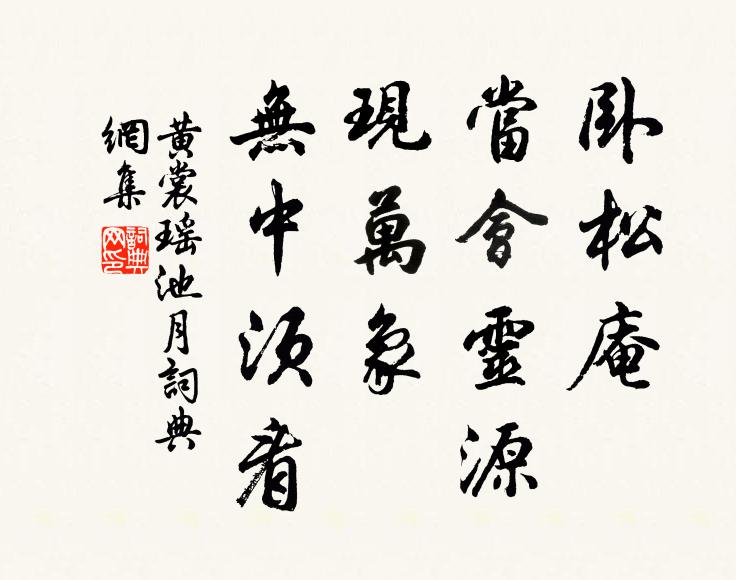 卧松庵
當會靈源
現萬象
無中須看
黄裳瑶池月詞典
網集
詞典
网印